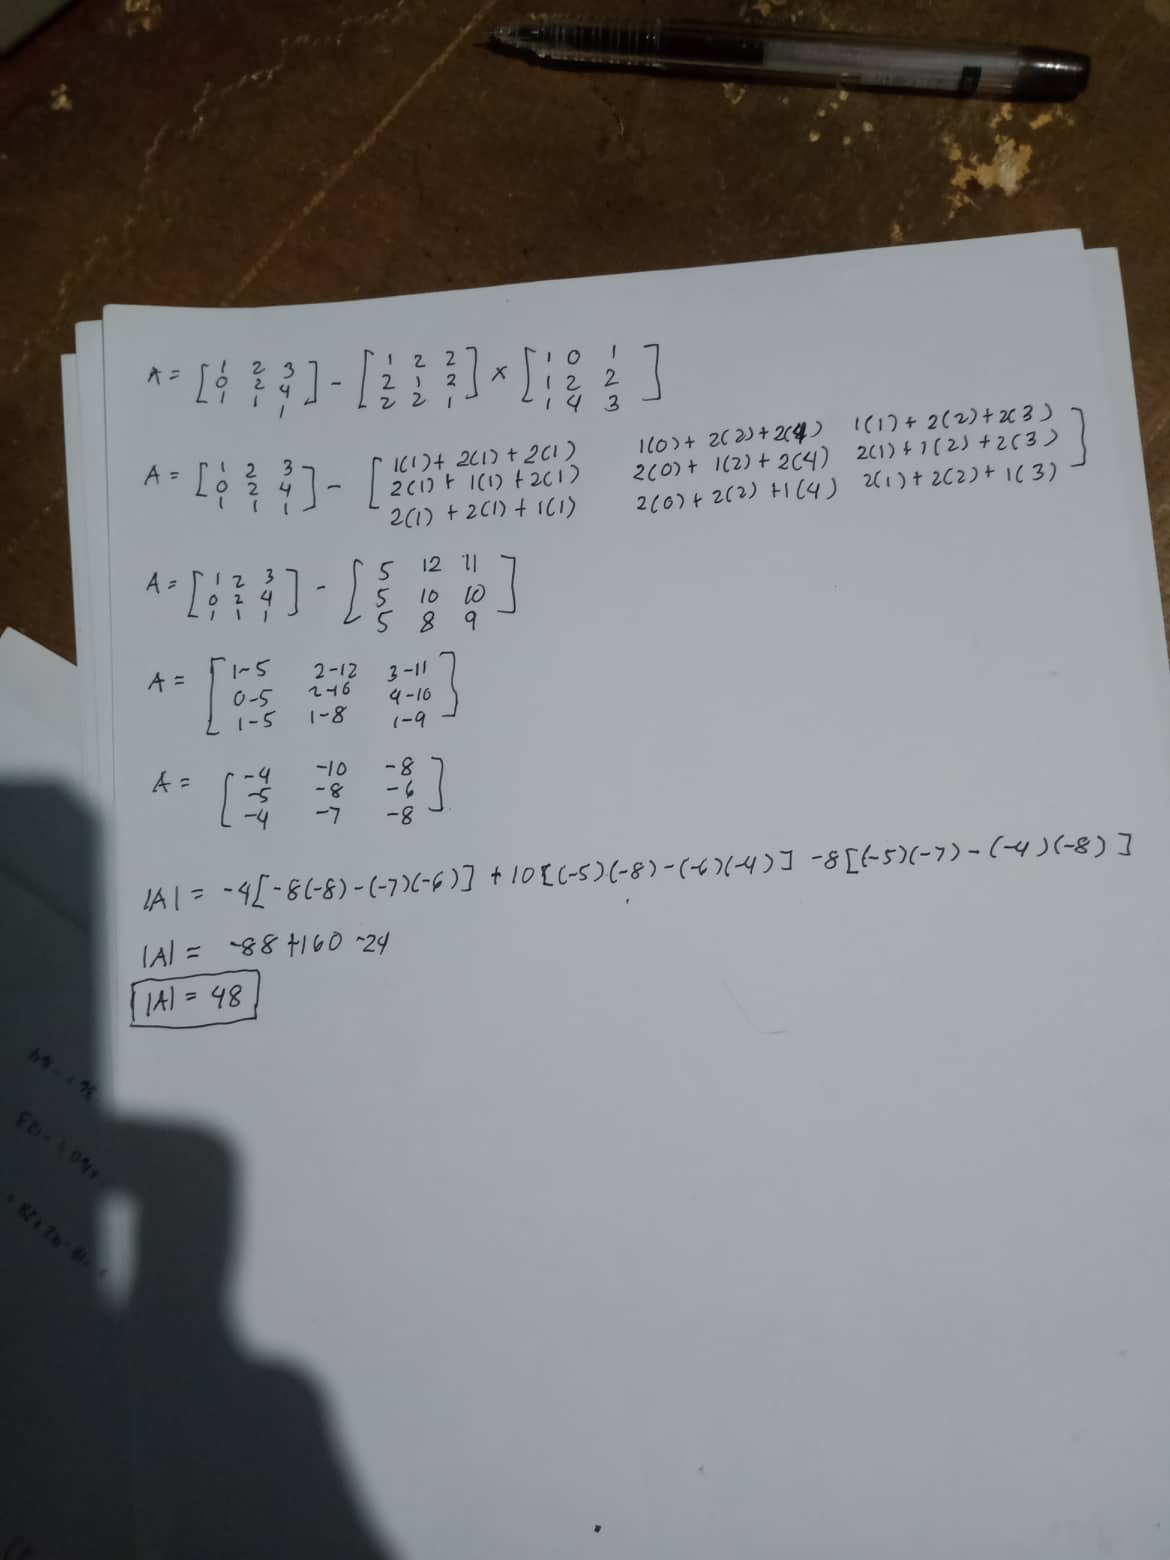 A = [ 1 2 3 ] - [ 1 2 2 ] x [ 1 0 1 ]
0 2 4 2 1 2 1 2 2
1 1 1 2 2 1 1 4 3
A = [ 1 2 3 ] - [ 1(1)+ 2(1) + 2(1) 1(0)+ 2(2)+2(4) 1(1)+ 2(2)+2(3) ]
0 2 4 2(1)+ 1(1) +2(1) 2(0)+ 1(2)+ 2(4) 2(1)+1(2)+2(3)
1 1 1 2(1) +2(1)+ 1(1) 2(0)+2(2) +1(4) 2(1)+2(2)+ 1(3)
A = [ 1 2 3 ] - [ 5 12 11 ]
0 2 4 5 10 10
1 1 1 5 8 9
A = [ 1-5 2-12 3-11 ]
0-5 2-10 4-10
1-5 1-8 1-9
A = [ -4 -10 -8 ]
-5 -8 -6
-4 -7 -8
|A| = -4[-8(-8)-(-7)(-6)] +10[(-5)(-8)-(-6)(-4)] -8[(-5)(-7)-(-4)(-8)]
|A| = -88+160-24
|A| = 48